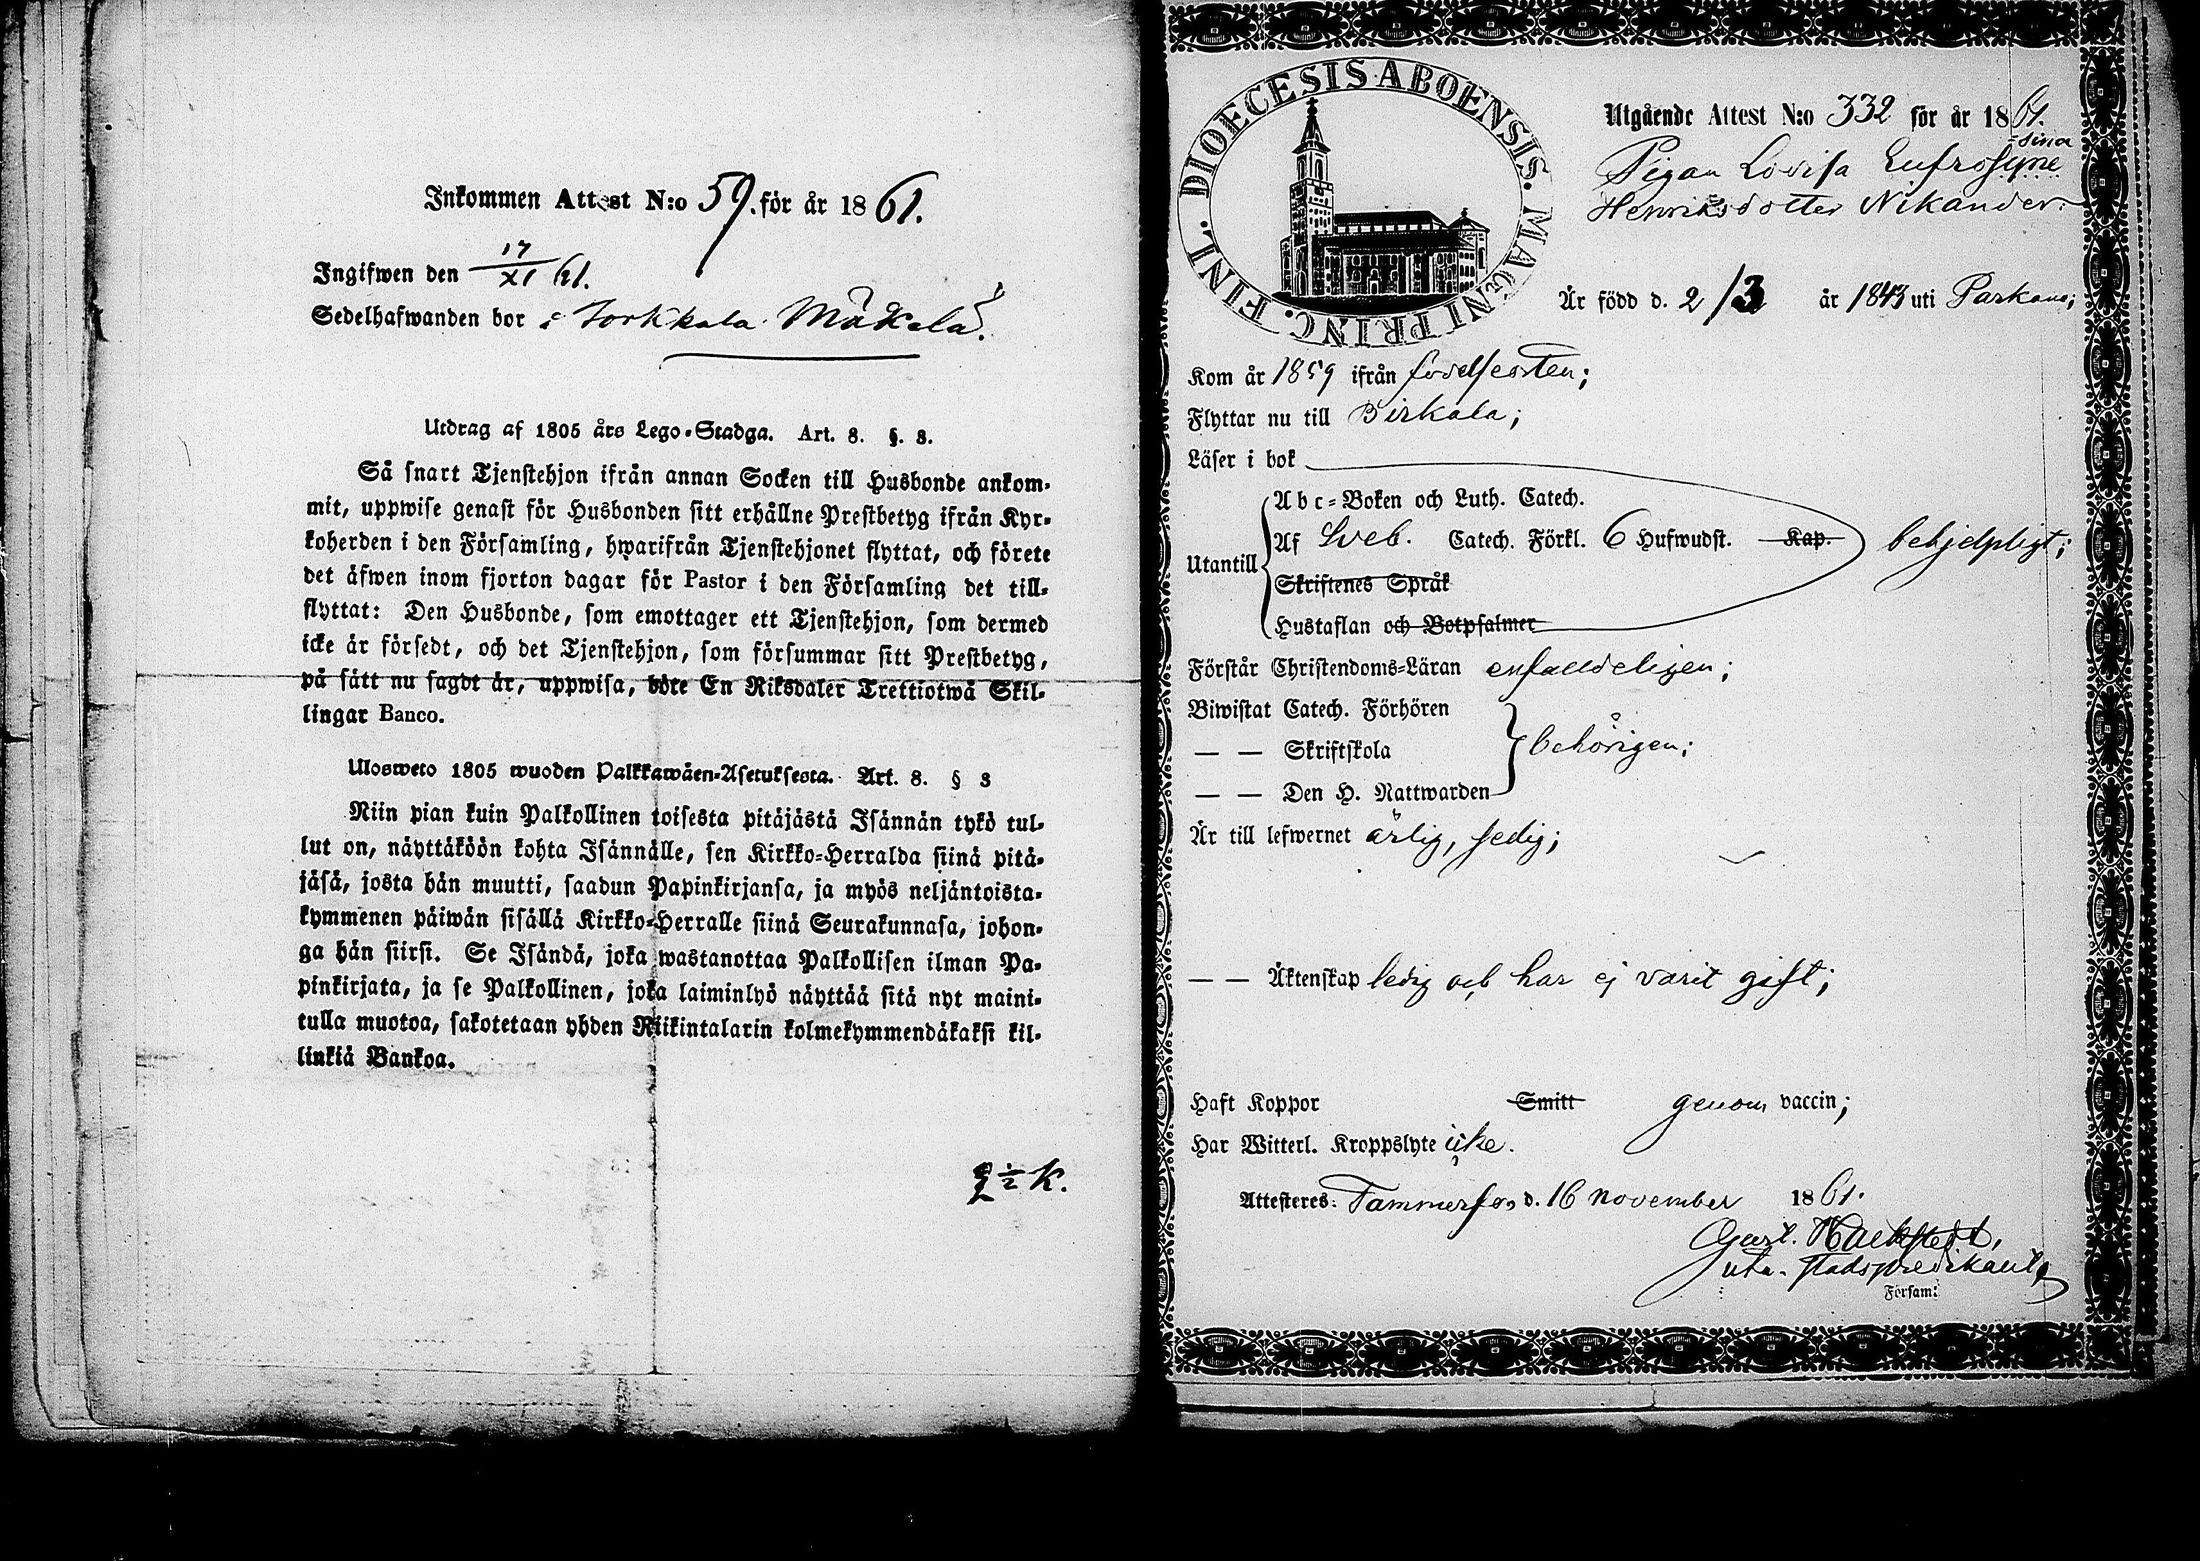 Inkommen Attest N:o 59. för år 1861.
Ingifwen den 17/XI 61.
Sedelhafwanden bor i Korkkala Mäkelä.
Utdrag af 1805 års Lego-Stadga. Art. 8. §. 3.
Så snart Tjenstehjon ifrån annan Socken till Husbonde ankom-
mit, uppwise genast för Husbonden sitt erhållne Prestbetyg ifrån Kyr-
koherden i den Församling, hwarifrån Tjenstehjonet flyttat, och förete
det äfwen inom fjorton dagar för Pastor i den Församling det till-
flyttat: Den Husbonde, som emottager ett Tjenstehjon, som dermed
icke är försedt, och det Tjenstehjon, som försummar sitt Prestbetyg,
på sätt nu sagdt är, uppwisa, böte En Riksdaler Trettiotwå Skil-
lingar Banco.
Ulosweto 1805 wuoden Palkkawäen-Asetuksesta. Art. 8. § 3
Niin pian kuin Palkollinen toisesta pitäjästä Isännän tykö tul-
lut on, näyttäköön kohta Isännälle, sen Kirkko-Herralda siinä pitä-
jäsä, josta hän muutti, saadun Papinkirjansa, ja myös neljäntoista-
kymmenen päiwän sisällä Kirkko-Herralle siinä Seurakunnasa, johon-
ga hän siirsi. Se Isändä, joka wastanottaa Palkollisen ilman Pa-
pinkirjata, ja se Palkollinen, joka laiminlyö näyttää sitä nyt maini-
tulla muotoa, sakotetaan yhden Riikintalarin kolmekymmendäkaksi kil-
linkiä Bankoa.
2 1/2 K.
DIOECESIS ABOENSIS. MAGNI PRINC. FINL.
Utgående Attest N:o 332 för år 1861.
sina
Pigan Lovisa Eufrosyne
Henriksdotter Nikander.
Är född d. 2/3 år 1843 uti Parkano;
Kom år 1859 ifrån födelseorten;
Flyttar nu till Birkala;
Läser i bok
Abc-Boken och Luth. Catech.
Utantill Af Sveb. Catech. Förkl. 6 Hufwudst. Kap. behjelpligt;
Skriftenes Språk
Hustaflan och Botpsalmer
Förstår Christendoms-Läran enfaldeligen;
Biwistat Catech. Förhören
— — Skriftskola behörigen;
— — Den H. Nattwarden
Är till lefwernet ärlig, sedig;
— — Äktenskap ledig och har ej varit gift;
Haft Koppor Smitt genom vaccin;
Har Witterl. Kroppslyte icke.
Attesteres: Tammerfors d. 16 november 1861.
Gust. Hackstedt,
stadspredikant
Forsam: